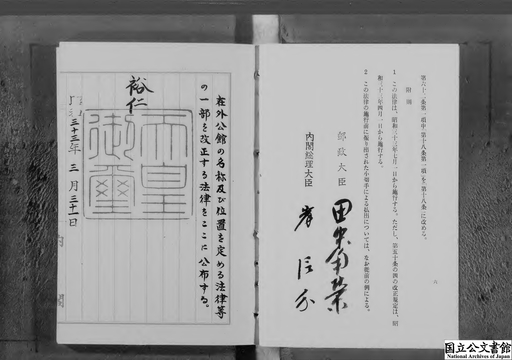 第六十二条第一項中「第十八条第一項」を「第十八条」に改める。
附則
1 この法律は、昭和三十三年七月一日から施行する。ただし、第五十条の四の改正規定は、昭
和三十三年四月一日から施行する。
2 この法律の施行前に振り出された小切手による払出については、なお従前の例による。
郵政大臣 田中角榮
内閣総理大臣 岸信介
六
在外公館の名称及び位置を定める法律等
の一部を改正する法律をここに公布する。
裕仁
天皇御璽
三十三年三月三十一日
内閣
国立公文書館
National Archives of Japan